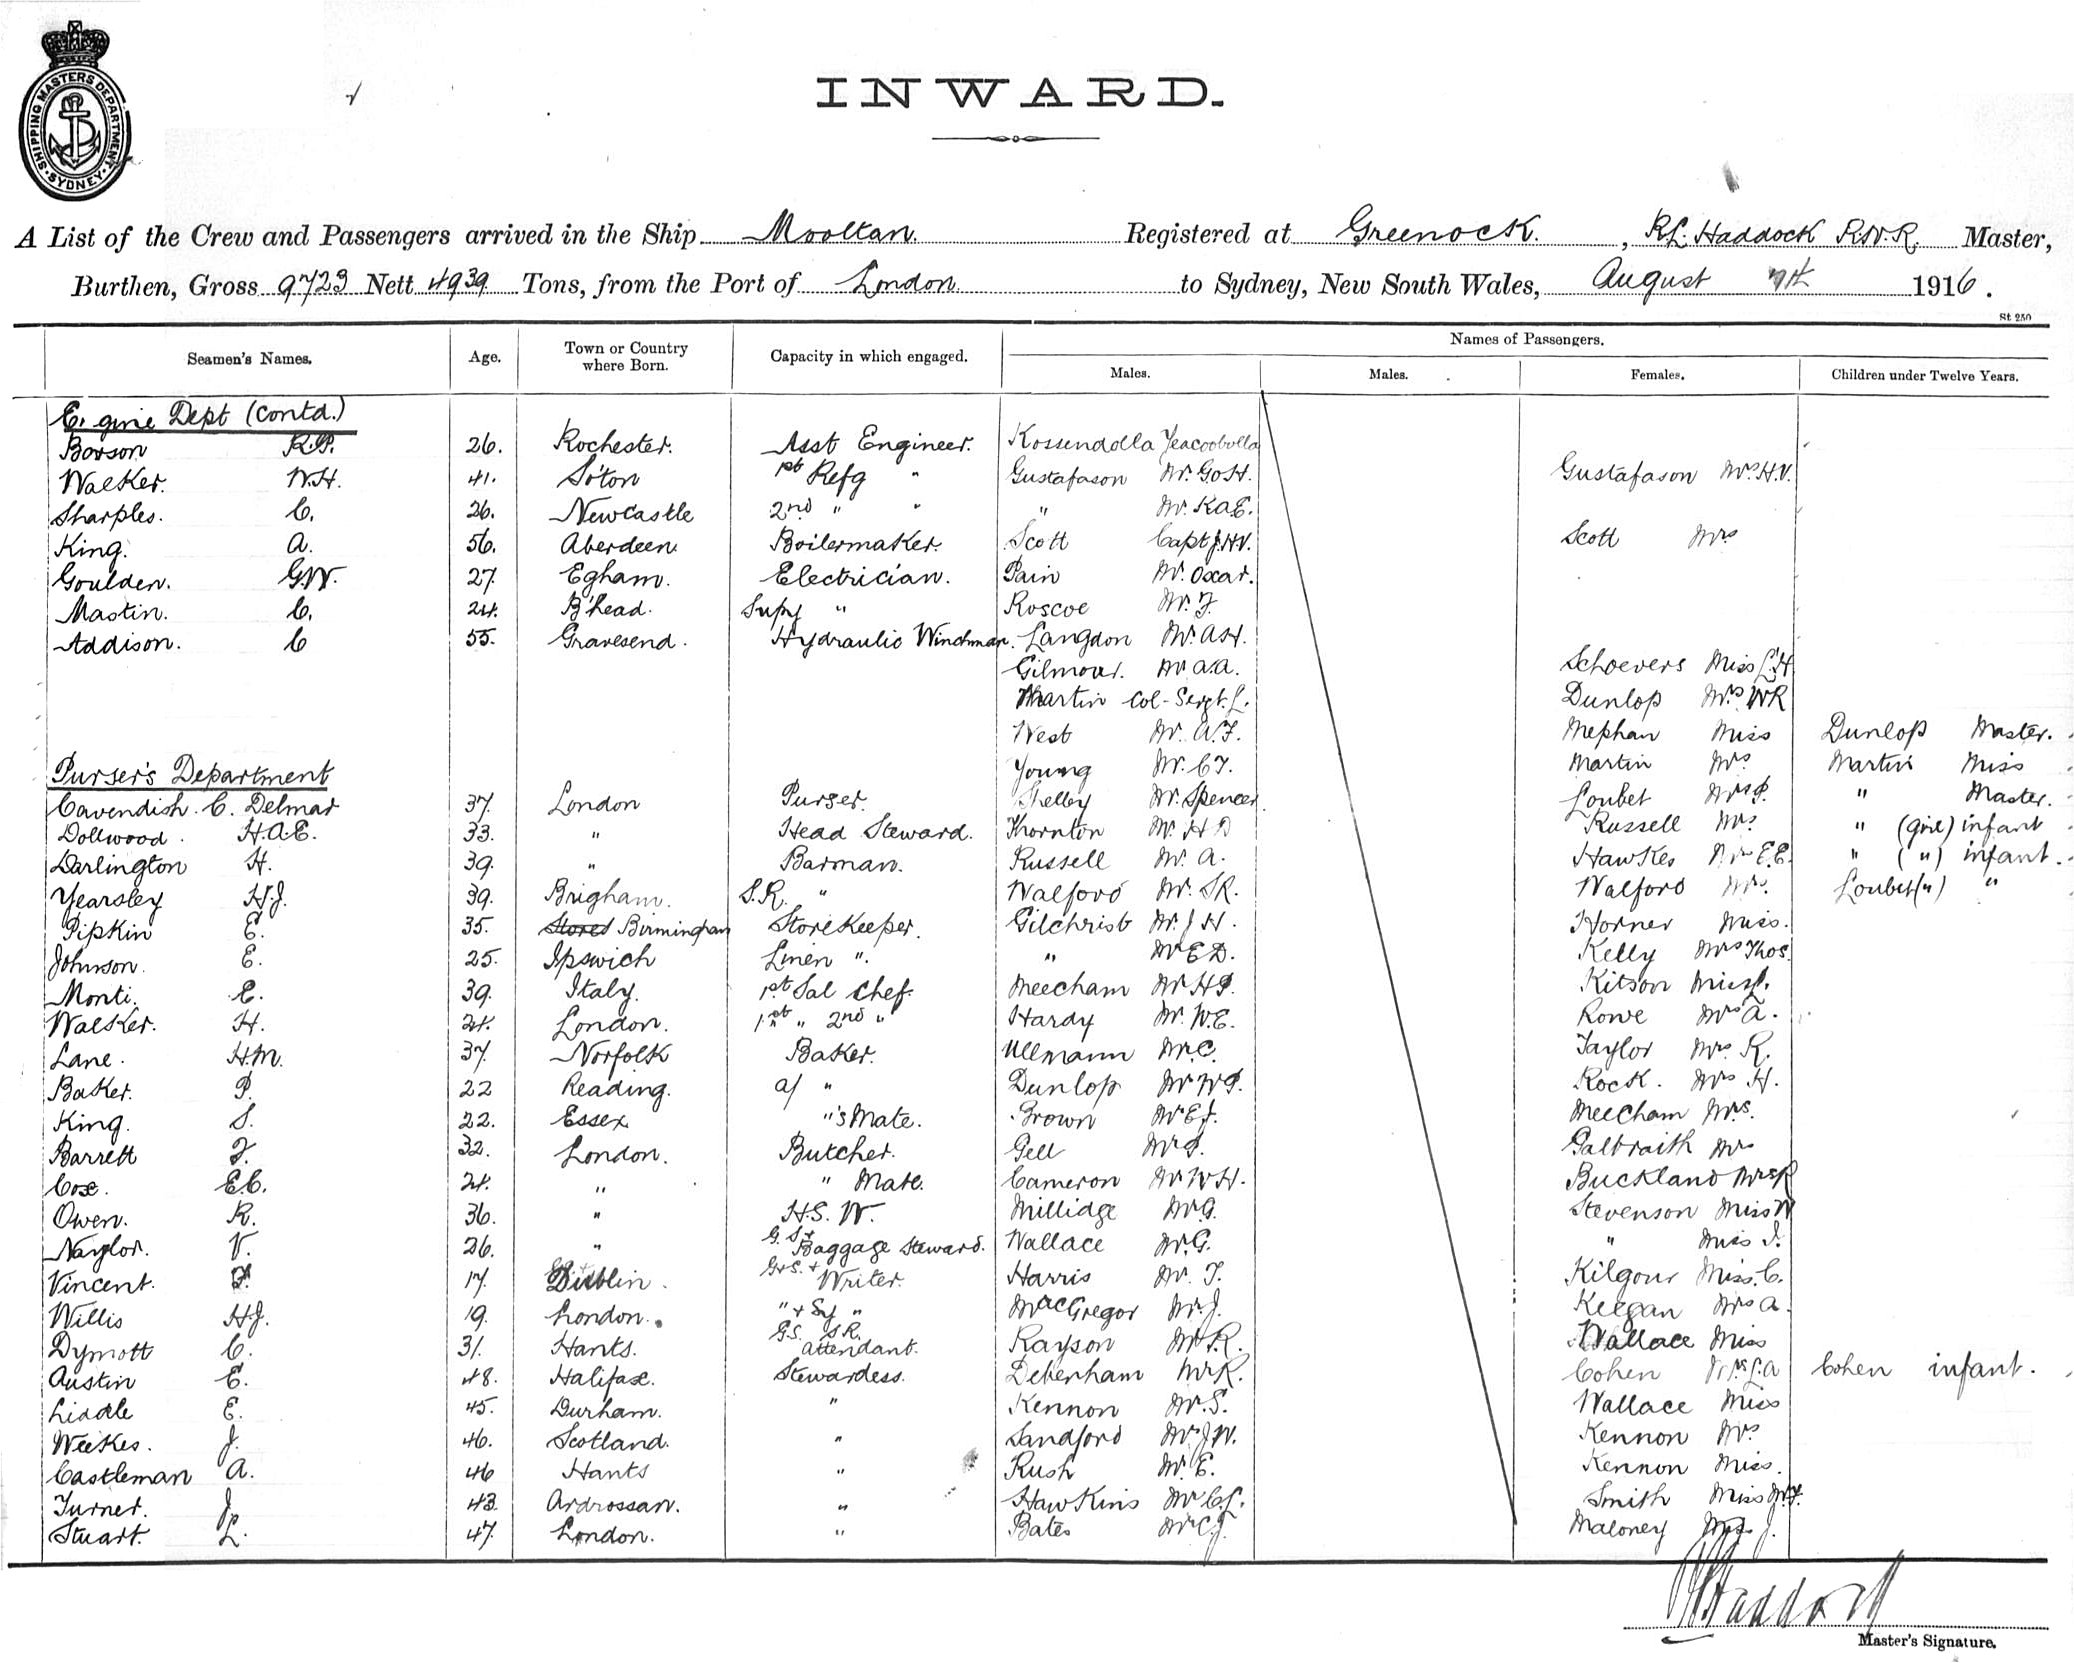 SHIPPING MASTERS DEPARTMENT
SYDNEY
INWARD.
A List of the Crew and Passengers arrived in the Ship Mooltan. Registered at Greenock. , Haddock R.N.R. Master,
Burthen, Gross 9723 Nett 4939 Tons, from the Port of London. to Sydney, New South Wales, August 7th 1916.
St 250
Names of Passengers.
Seamen's Names. Age. Town or Country where Born. Capacity in which engaged. Males. Males. Females. Children under Twelve Years.
Engine Dept (Contd.)
R.P. 26. Rochester. Asst Engineer. Kossendolla Yeacoobvlla
Walker. W.H. 41. So'ton 1st Refg " Gustafason Mr. G.O.H. Gustafason Mrs H.V.
Sharples. C. 26. Newcastle 2nd " " " Mr. K.A.E.
King. A. 56. Aberdeen Boilermaker. Scott Capt J.H.V. Scott Mrs
Goulden. G.W. 27. Egham. Electrician. Pain Mr. Oscar.
Mastin. C. 24. B'head. Supy " Roscoe Mr. F.
Addison. C 55. Gravesend. Hydraulic Winchman. Langdon Mr. A.H.
Gilmour. Mr A.A. Schoevers Miss L.H.
Martin Col-Sergt. L. Dunlop Mrs W R
West Mr. A.F. Mephan Miss Dunlop Master.
Purser's Department Young Mr. C.F. Martin Mrs Martin Miss
Cavendish. C. Delmar 37. London Purser. Shelley Mr. Spencer. Loubet Mrs P. " Master.
Dollwood. H.A.E. 33. " Head Steward. Thornton Mr. H D Russell Mrs. " (girl) infant
Darlington H. 39. " Barman. Russell Mr. A. Hawkes Mrs E.E. " (") infant.
Yearsley H.J. 39. Brigham. S.R. " Walford Mr. S.R. Walford Mrs. Loubet (") "
Pipkin E. 35. Stores Birmingham Storekeeper. Gilchrist Mr. J H. Horner Miss.
Johnson. E. 25. Ipswich Linen ". " Mr E.D. Kelly Mrs Thos.
Monti. E. 39. Italy. 1st Sal Chef. Meecham Mr H.P. Kitson Miss
Walker. H. 24. London. 1st " 2nd " Hardy Mr. W.E. Rowe Mrs A.
Lane. H.M. 37. Norfolk Baker. Ullmann Mr. C. Taylor Mrs. R.
Baker. P. 22 Reading. a/ " Dunlop Mr W P. Rock. Mrs H.
King. S. 22. Essex " 's Mate. Brown Mr E.J. Meecham Mrs.
Barrett F. 32. London. Butcher. Gell Mr S. Galbraith Mrs
Cox. E.C. 24. " " Mate. Cameron Mr W H. Buckland Mrs R
Owen. R. 36. " H.S. W. Millidge Mr G. Stevenson Miss W
Naylor. V. 26. " G.S.+ Baggage Steward. Wallace Mr. G. " Miss I.
Vincent. F. 17. Dublin. G.S. + Writer. Harris Mr. T. Kilgour Miss. C.
Willis H.J. 19. London. " + Sy " MacGregor Mr. J. Keegan Mrs A.
Dymott C. 31. Hants. G.S. S.R. attendant. Rayson Mr R. Wallace Miss
Austin E. 48. Halifax. Stewardess. Debenham Mr R. Cohen Mrs L.A Cohen infant.
Liddle E. 45. Durham. " Kennon Mr. S. Wallace Miss
Weekes. J. 46. Scotland. " Sandford Mr. J.W. Kennon Mrs
Castleman A. 46 Hants " Rush Mr. E. Kennon Miss.
Turner. J. 43. Ardrossan. " Hawkins Mr C.L. Smith Miss M.F.
Stuart. L. 47. London. " Bates Mr C.J. Maloney J.
Haddock
Master's Signature.